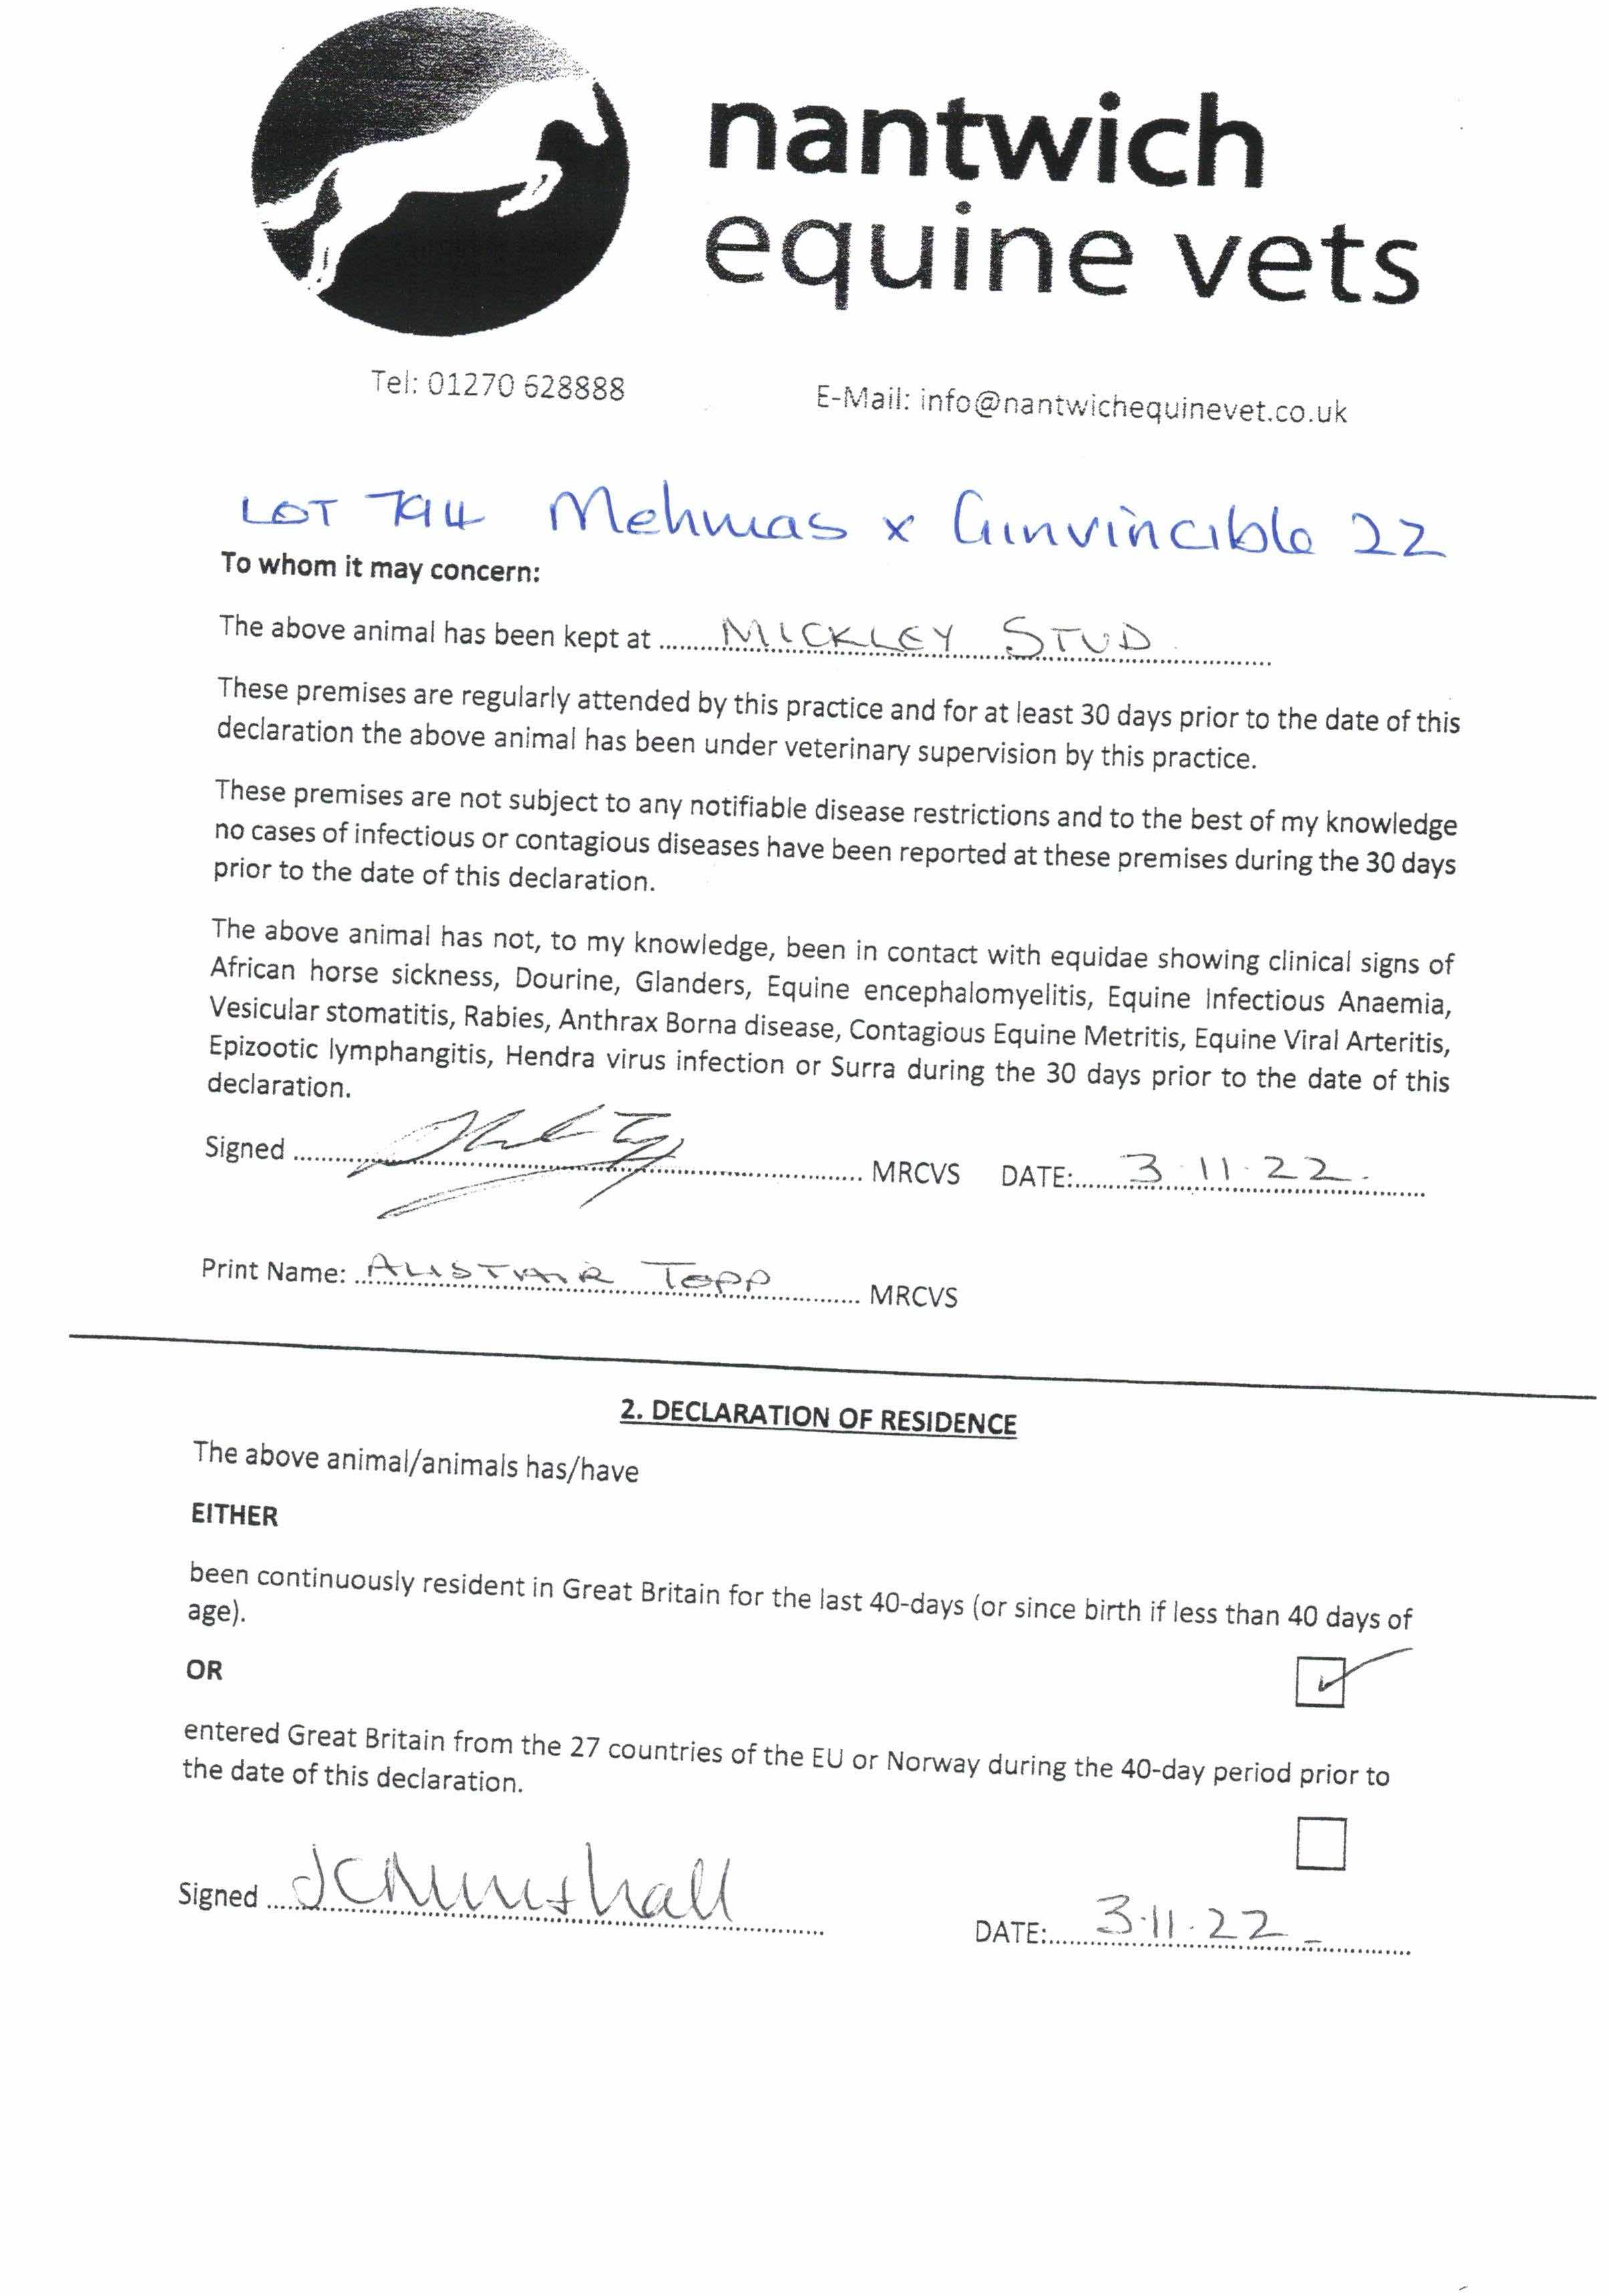 nantwich
equine vets
Tel: 01270 628888
E-Mail: info@nantwichequinevet.co.uk
LOT 794 Mehmas x Ginvincible 22
To whom it may concern:
The above animal has been kept at ........MICKLEY STUD........
These premises are regularly attended by this practice and for at least 30 days prior to the date of this
declaration the above animal has been under veterinary supervision by this practice.
These premises are not subject to any notifiable disease restrictions and to the best of my knowledge
no cases of infectious or contagious diseases have been reported at these premises during the 30 days
prior to the date of this declaration.
The above animal has not, to my knowledge, been in contact with equidae showing clinical signs of
African horse sickness, Dourine, Glanders, Equine encephalomyelitis, Equine Infectious Anaemia,
Vesicular stomatitis, Rabies, Anthrax Borna disease, Contagious Equine Metritis, Equine Viral Arteritis,
Epizootic lymphangitis, Hendra virus infection or Surra during the 30 days prior to the date of this
declaration.
Signed ........ MRCVS DATE:........3.11.22.........
Print Name: ........ALISTAIR TOPP........ MRCVS
2. DECLARATION OF RESIDENCE
The above animal/animals has/have
EITHER
been continuously resident in Great Britain for the last 40-days (or since birth if less than 40 days of
age).
OR
entered Great Britain from the 27 countries of the EU or Norway during the 40-day period prior to
the date of this declaration.
Signed ........ DATE:........3.11.22........